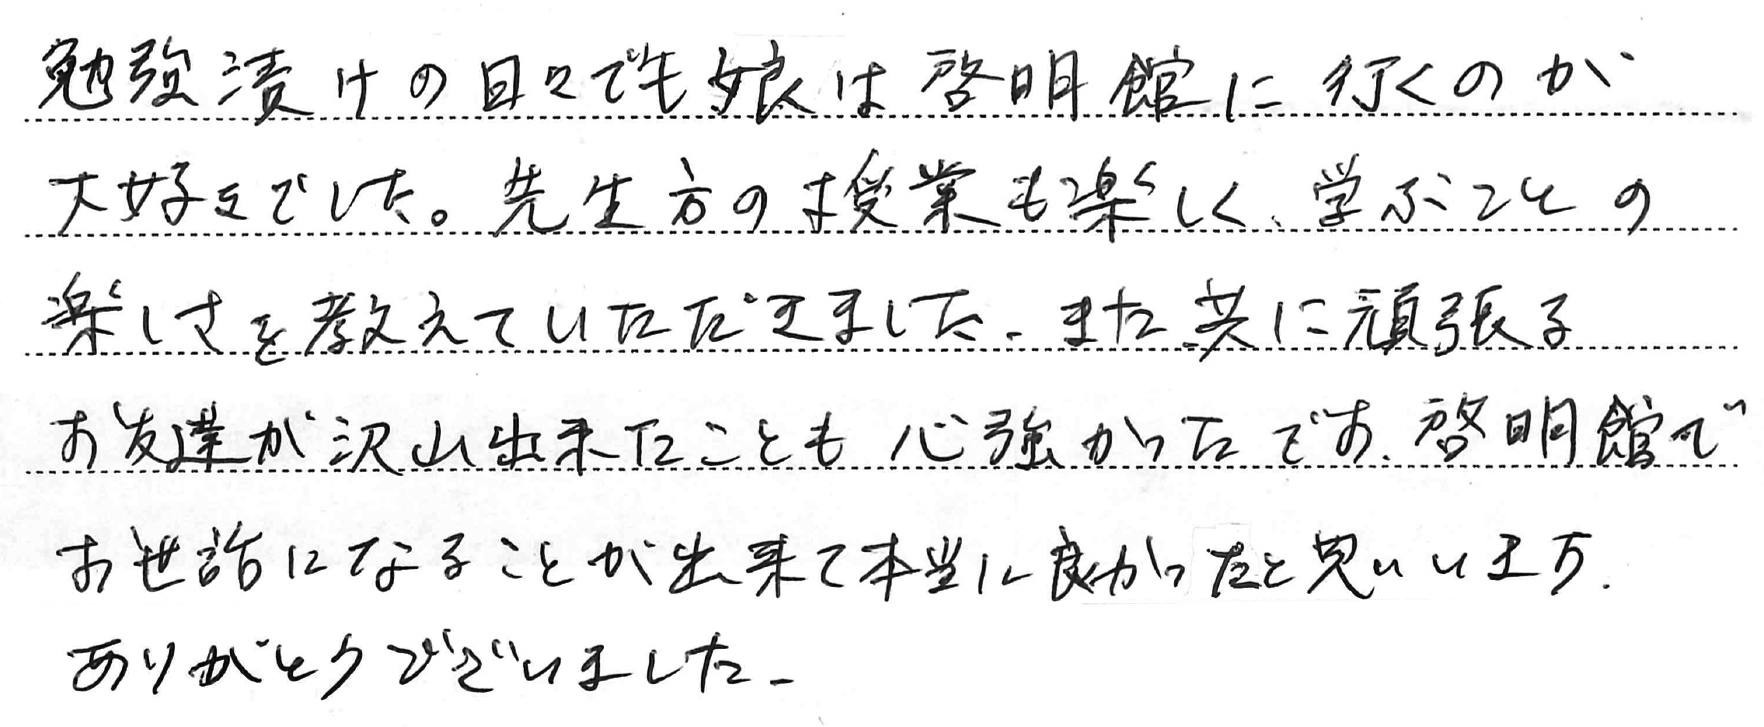 勉強漬けの日々でも娘は啓明館に行くのが
大好きでした。先生方の授業も楽しく、学ぶことの
楽しさを教えていただきました。また、共に頑張る
お友達が沢山出来たことも心強かったです。啓明館で
お世話になることが出来て本当に良かったと思います。
ありがとうございました。